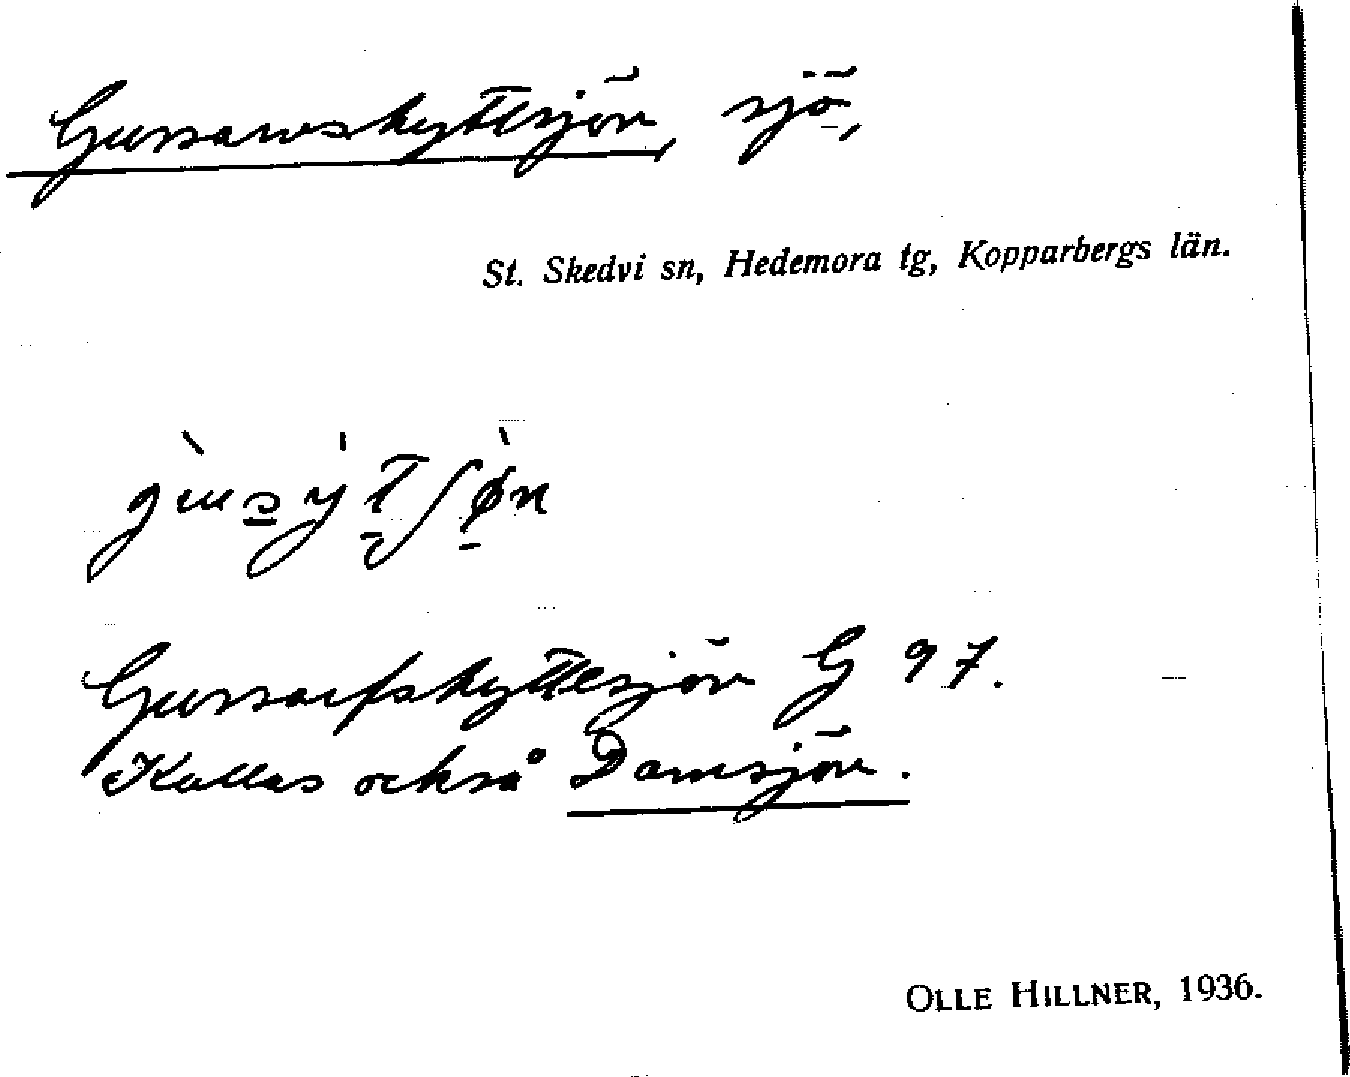 Gussarvshyttesjön, sjö,
St. Skedvi sn, Hedemora tg, Kopparbergs län.
Gussarfshyttesjön G 97.
Kallas också Damsjön.
OLLE HILLNER, 1936.